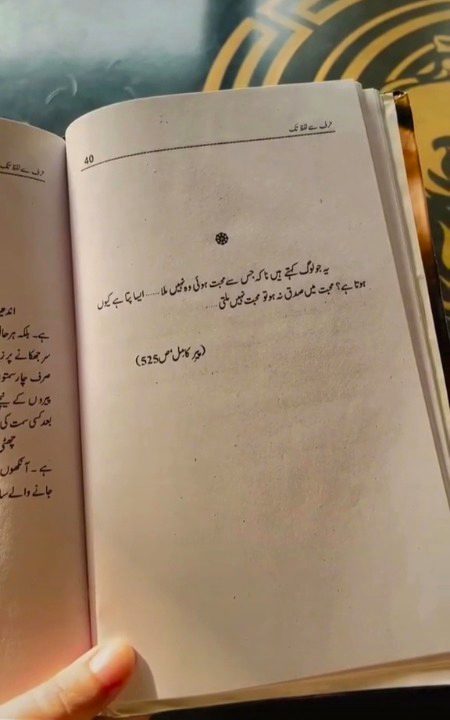 حرف سے لفظ تک
40
یہ جو لوگ کہتے ہیں نا کہ جس سے محبت ہوئی وہ نہیں ملا..... ایسا پتا ہے کیوں
ہوتا ہے؟ محبت میں صدق نہ ہو تو محبت نہیں ملتی....
(پیر کامل ص525)
حرف سے لفظ تک
اندھیر
ہے۔ بلکہ ہر حال
سر جھکانے پر ز
صرف چار ستو
پیروں کے نیچے
بعد کسی سمت کی
چھٹی
ہے۔ آنکھوں
جانے والے سا